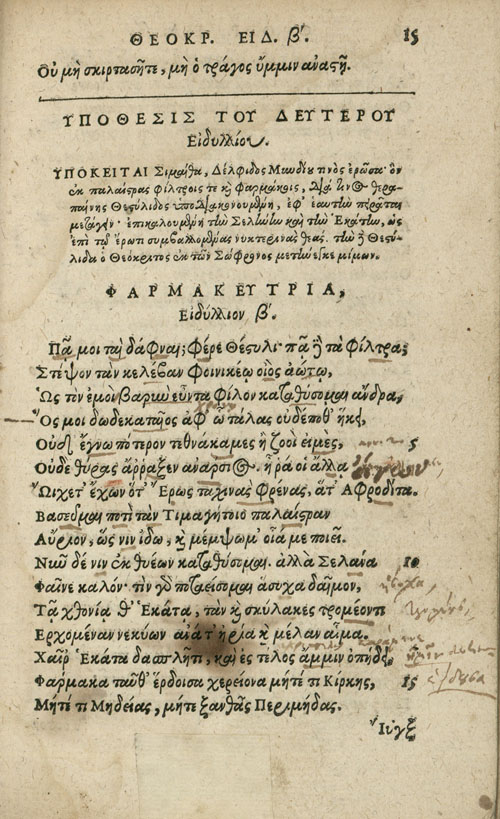 ΘΕΟΚΡ. ΕΙΔ. β'. 15
Οὐ μὴ σκιρτασῆτε, μὴ ὁ τράγος ὔμμιν ἀναστῇ.
ΥΠΟΘΕΣΙΣ ΤΟΥ ΔΕΥΤΕΡΟΥ
Εἰδυλλίου.
ΥΠΟΚΕΙΤΑΙ Σιμαίθα, Δέλφιδος Μυνδίου τινὸς ἐρῶσα· ὃν
ἐκ παλαίστρας φίλτροις τε καὶ φαρμάκοις, διά τινος θερα-
παίνης Θεστύλιδος ὑποδιακονουμένη, ἐφ' ἑαυτὴν πειρᾶται
μετάγειν· ἐπικαλουμένη τὴν Σελήνην καὶ τὴν Ἑκάτην, ὡς
ἐπὶ τῷ ἔρωτι συμβαλλομένας νυκτερινὰς θεάς. τὴν δὲ Θεστύ-
λιδα ὁ Θεόκριτος ἐκ τῶν Σώφρονος μετήνεγκε μίμων.
ΦΑΡΜΑΚΕΥΤΡΙΑ,
Εἰδύλλιον β'.
Πᾶ μοι ταὶ δάφναι; φέρε Θέστυλι· πᾶ δὲ τὰ φίλτρα;
Στέψον τὰν κελέβαν φοινικέῳ οἰὸς ἀώτῳ,
Ὡς τὸν ἐμὸν βαρὺν εὖντα φίλον καταθύσομαι ἄνδρα,
Ὅς μοι δωδεκαταῖος ἀφ' ὧ τάλας οὐδέποθ' ἥκει,
Οὐδ' ἔγνω πότερον τεθνάκαμες ἢ ζοοὶ εἰμές, 5
Οὐδὲ θύρας ἄρραξεν ἀνάρσιος. ἦ ῥά οἱ ἄλλᾳ
Ὤιχετ' ἔχων ὅτ' Ἔρως ταχινὰς φρένας, ἅτ' Ἀφροδίτα.
Βασεῦμαι ποτὶ τὰν Τιμαγήτοιο παλαίστραν
Αὔριον, ὥς νιν ἴδω, καὶ μέμψομ' οἷά με ποιεῖ.
Νῦν δέ νιν ἐκ θυέων καταθύσομαι. ἀλλὰ Σελάνα 10
Φαῖνε καλόν· τὶν γὰρ ποταείσομαι ἅσυχα δαῖμον,
Τᾷ χθονίᾳ θ' Ἑκάτᾳ, τὰν καὶ σκύλακες τρομέοντι
Ἐρχομέναν νεκύων ἀνά τ' ἠρία καὶ μέλαν αἷμα.
Χαῖρ' Ἑκάτα δασπλῆτι, καὶ ἐς τέλος ἄμμιν ὀπήδει,
Φάρμακα ταῦθ' ἔρδοισα χερείονα μήτέ τι Κίρκης, 15
Μήτέ τι Μηδείας, μήτε ξανθᾶς Περιμήδας.
Ἴυγξ